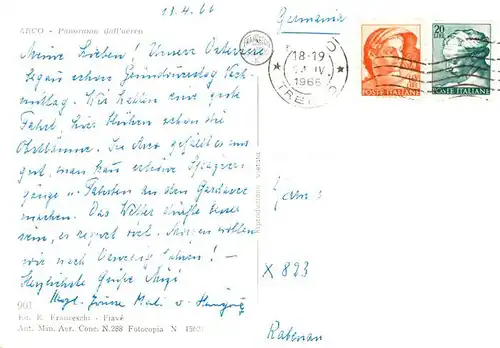 13.4.66
Germania
ARCO - Panorama dall'aereo
18-19
IV
1966
TRENTO
POSTE ITALIANE
20 LIRE
POSTE ITALIANE
Meine Lieben! Unsere Osterreise
begann schon Gründonnerstag Vor-
mittag. Wir hatten eine gute
Fahrt, hier blühen schon die
Obstbäume. In Arco gefällt es uns
gut, man kann schöne Spazier-
gänge u. Fahrten an den Gardasee
machen. Das Wetter dürfte besser
sein, es regnet viel. Morgen wollen
wir nach Venedig fahren! -
Herzlichste Grüße
Riproduzione vietata
X 823
Rabenau
901
Ed. R. Franceschi - Fiavé
Aut. Min. Aer. Conc. N.288 Fotocopia N